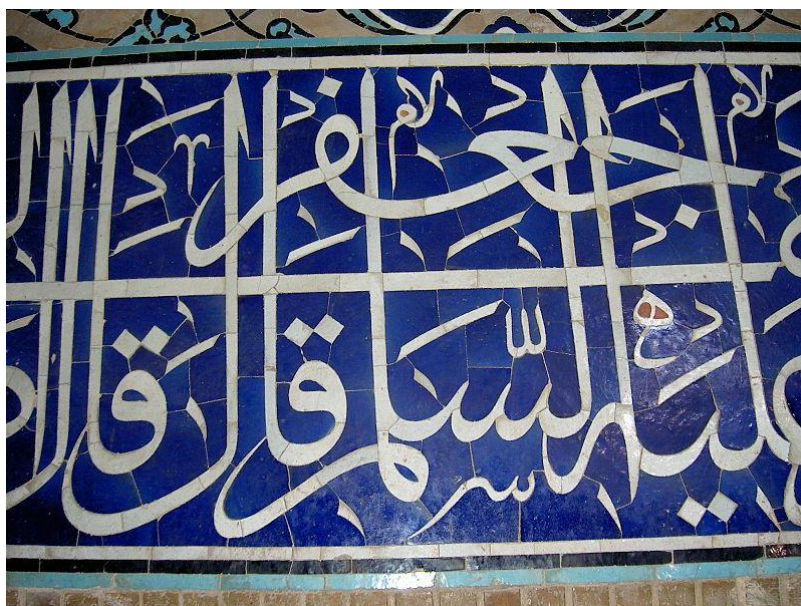 جعفر
عليه السلم قال قال